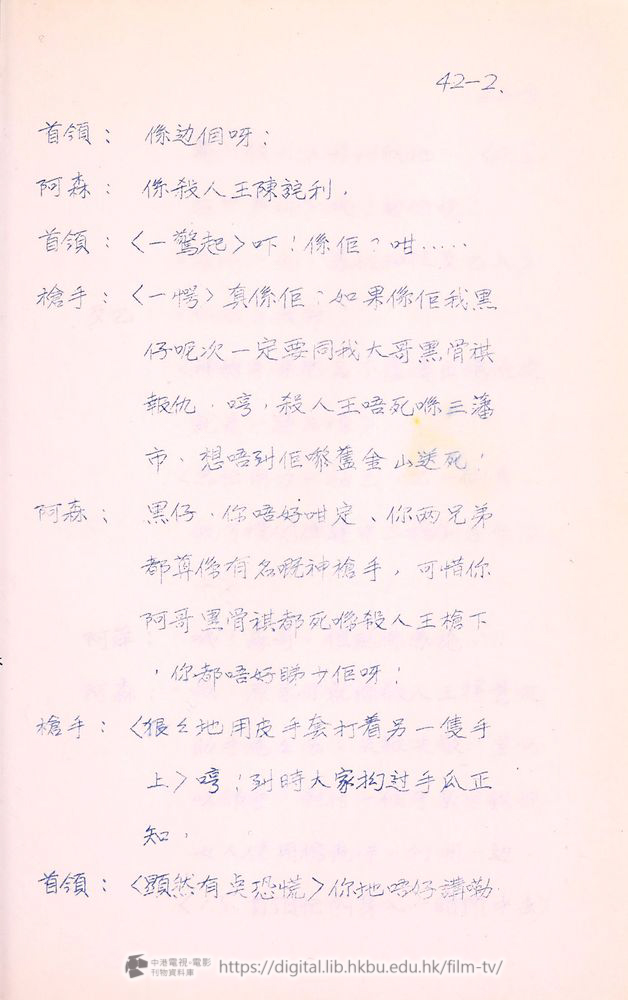 42-2.
首領： 係边個呀！
阿森： 係殺人王陳詫利．
首領：〈一驚起〉吓！係佢？咁……
槍手：〈一愕〉真係佢，如果係佢我黑
仔呢次一定要同我大哥黑骨祺
報仇．哼，殺人王唔死喺三藩
市、想唔到佢嚟舊金山送死！
阿森： 黑仔．你唔好咁定、你兩兄弟
都算係有名嘅神槍手，可惜你
阿哥黑骨祺都死喺殺人王槍下
，你都唔好睇少佢呀！
槍手：〈狠々地用皮手套打着另一隻手
上〉哼！到時大家拗过手瓜正
知．
首領：〈顯然有点恐慌〉你地唔仔講嘞
中港電視·電影
刊物資料庫
https://digital.lib.hkbu.edu.hk/film-tv/